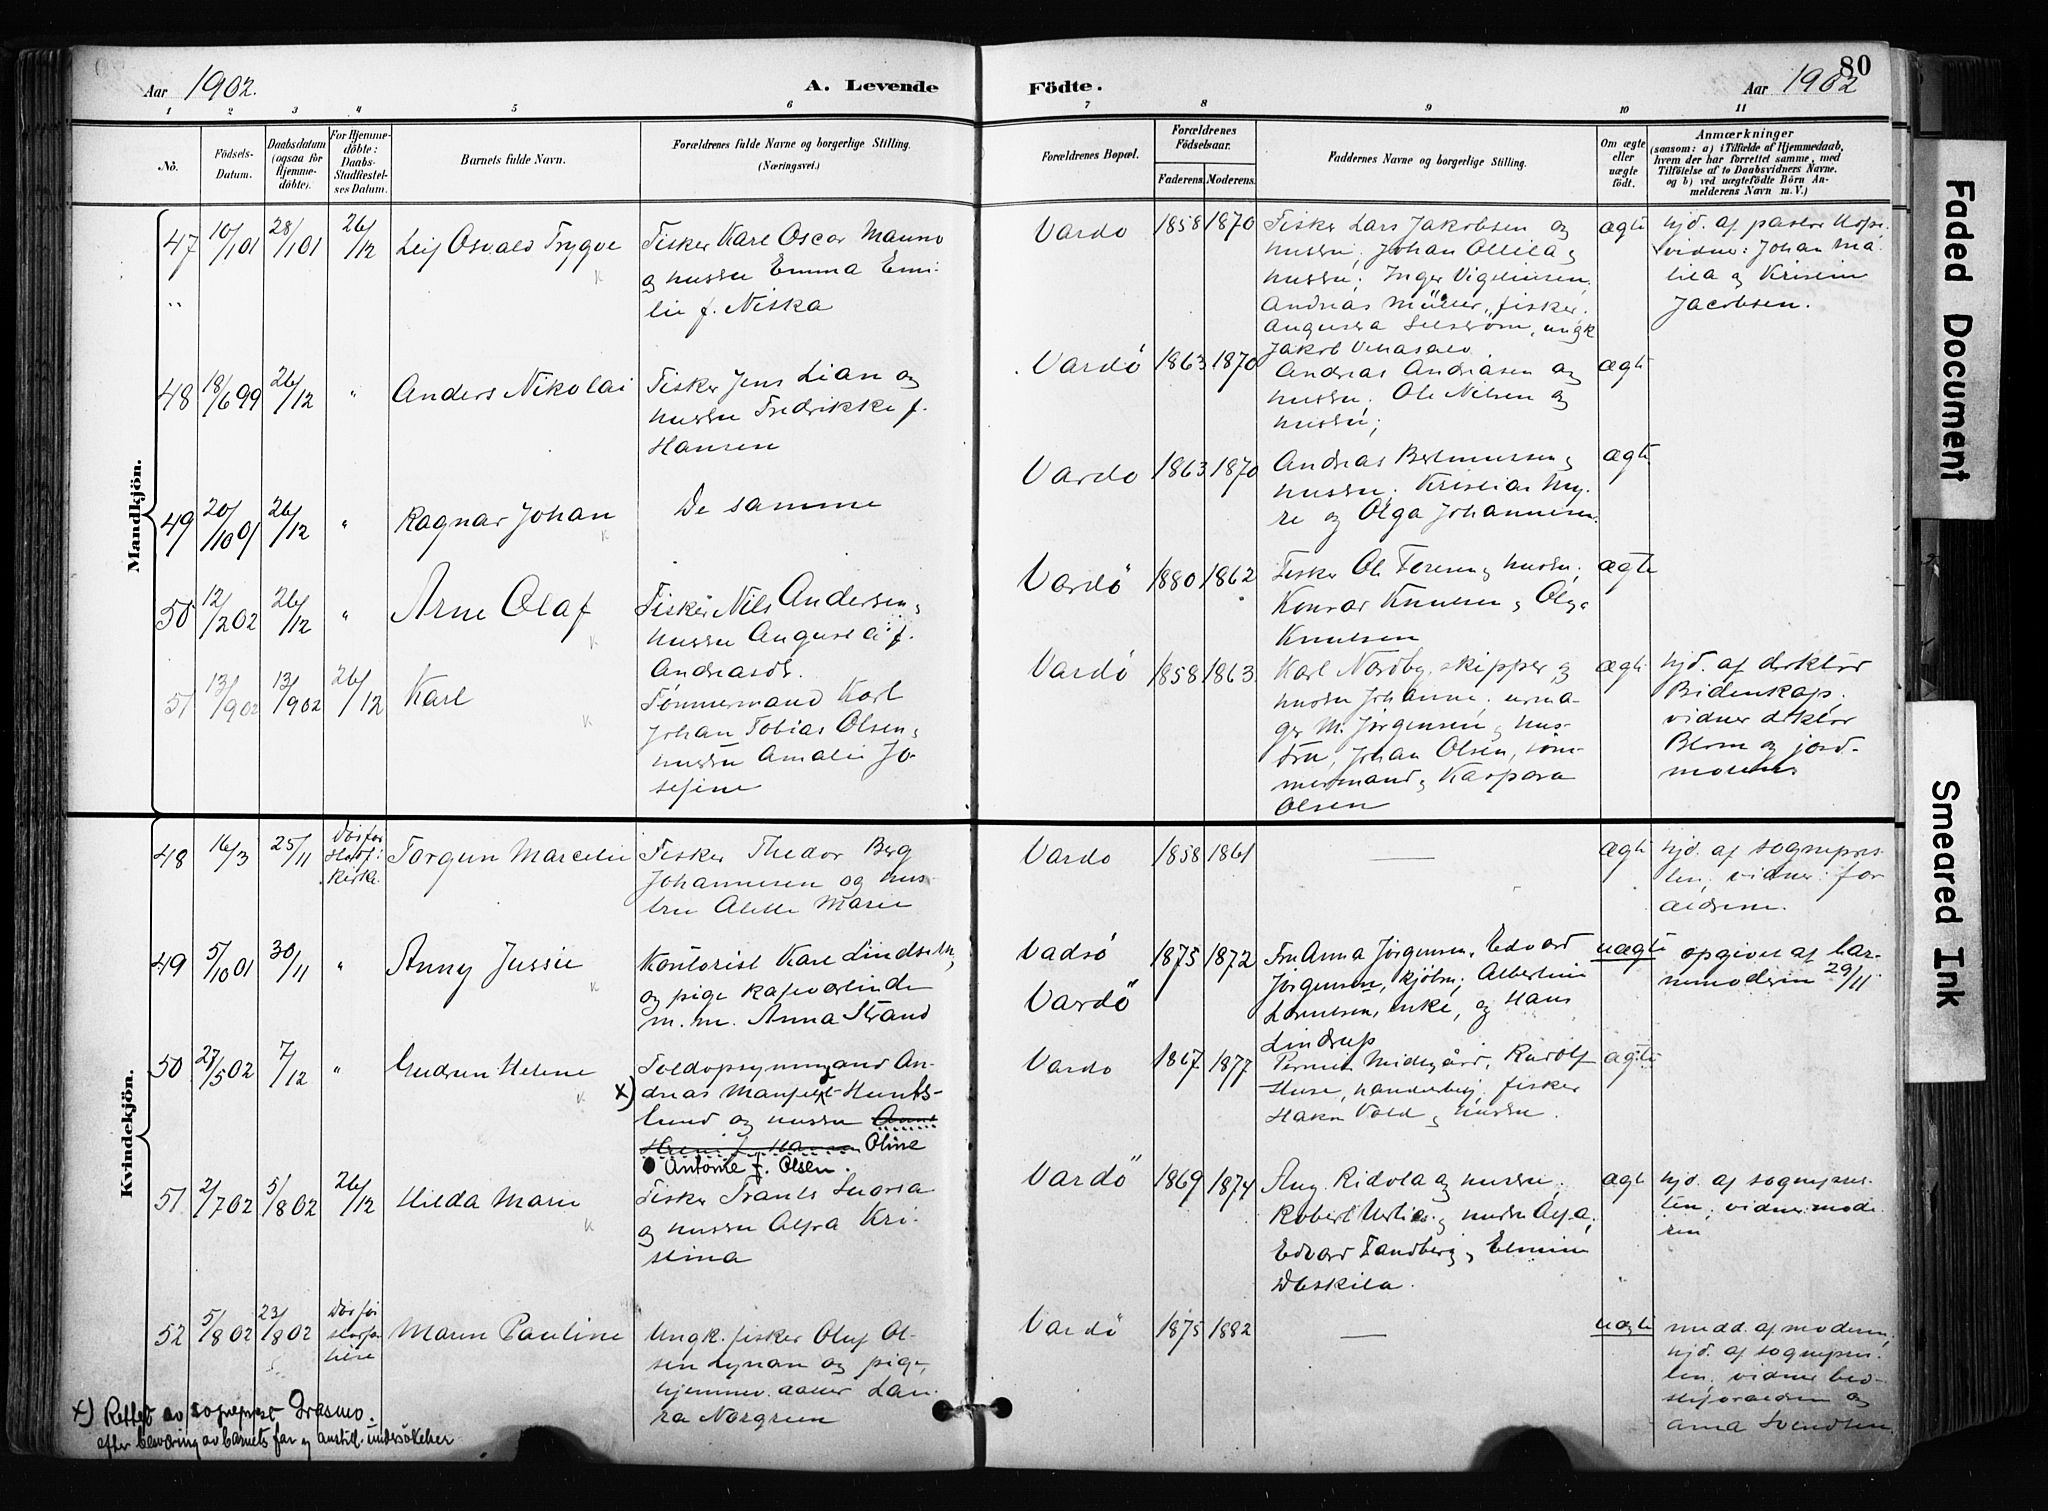 80
Aar 1902.
A. Levende
Födte.
Aar 1902
1 2 3 4 5 6 7 8 9 10 11
No.
Födsels-Datum.
Daabsdatum (ogsaa for Hjemmedöbte).
For Hjemmedöbte: Daabs-Stadfæstelses Datum.
Barnets fulde Navn.
Forældrenes fulde Navne og borgerlige Stilling.
(Næringsvei.)
Forældrenes Bopæl.
Forældrenes Födselsaar.
Faderens. Moderens.
Faddernes Navne og borgerlige Stilling.
Om ægte eller uægte födt.
Anmærkninger
(saasom: a) i Tilfælde af Hjemmedaab, hvem der har forrettet samme, med Tilföielse af to Daabsvidners Navne. og b) ved uægtefödte Börn Anmelderens Navn m. V.)
Mandkjön.
47 10/1 01 28/1 01 26/12 Leif Osvald Trygve
Fisker Karl Oscar Mauno
og hustru Emma Emi-
lie f. Niska
Vardö 1858 1870
Fisker Lars Jakobsen og
hustru; Johan Ollila og
hustru; Inger Vigeliusen,
Andreas Müller, fisker.
ægte
hjd. af pastor
vidner: Johan
og Kristin
Jacobsen.
48 18/6 99 26/12 " Anders Nikolai
Fisker Jens Lian og
hustru Fredrikke f.
Hansen
Vardö 1863 1870
Andreas Andriasen og
hustru. Ole Nilsen og
hustru;
ægte
49 20/10 01 26/12 " Ragnar Johan
De samme
Vardo 1863 1870
Andreas
hustru; Kristian My-
re og Olga Johannesen.
ægte
50 12/2 02 26/12 " Arne Olaf
Fisker Nils Andersen og
hustru Augusta f.
Andreasdt.
Vardö 1880 1862
Fisker Ole og hustru;
Konrad Knutsen og Olga
Knutsen
ægte
51 13/9 02 13/9 02 26/12 Karl
Tømmermand Karl
Johan Tobias Olsen og
hustru Amalie Jo-
sefine
Vardö 1858 1863
Karl Nordby, skipper og
hustru Johanne; urma-
ger M. Jörgensen og hus-
tru, Johan Olsen, töm-
mermand og Kaspara
Olsen
ægte
hjd. af doktor
Bidenkap.
vidner doktor
Blom og jord-
moderen
Kvindekjön.
48 16/3 25/11 Torgun Marcelie
Fisker Thedor Berg
Johannesen og hus-
tru Alette Marie
Vardo 1858 1861
—
ægte
hjd. af sognepres-
ten; vidner: for
ældrene.
49 5/10 01 30/11 " Anny Jussie
Kontorist Karl Lindseth,
og pige kafeværtinde
m. m. Anna Strand
Vadsö
Vardö 1875 1872
Fru Anna Jörgensen, Edvard
Jörgensen, kjöbm; Albertine
Lorentsen, enke, og Hans
Lindrup
uægte
opgivet af bar-
nemoderen 29/11
50 27/5 02 7/12 " Gudrun Helene
Toldopsynsmand An-
x) dreas Manfeldt-Hunts-
lund og hustru Anne
Oline
Antonie f. Olsen.
Vardo 1867 1877
Midtgård, Rudolf
Huse, handelsbetj; fisker
Hakon Vold og hustru.
ægte
51 2/7 02 5/8 02 26/12 Hilda Marie
Fisker Frants
og hustru Alfa Kri-
stina
Vardö 1869 1874
Aug. Ridola og hustru;
Robert og hustru Alfa;
Edvard Sandberg og Elmine
ægte
hjd. af sognepres-
ten; vidner: mode-
ren
52 5/8 02 23/8 02 Maren Pauline
Ungk. fisker Oluf Ol-
sen og pige,
hjemmev. datter Lau-
ra Norgreen
Vardö 1875 1882
—
uægte
medd. af moderen,
hjd. af sognepres-
ten, vidner bed-
steforældre og
Anna Svendsen
x) Rettet av sogneprest Grasmo.
efter begjæring av barnets far og anstill. undersökelser
Faded Document
Smeared Ink